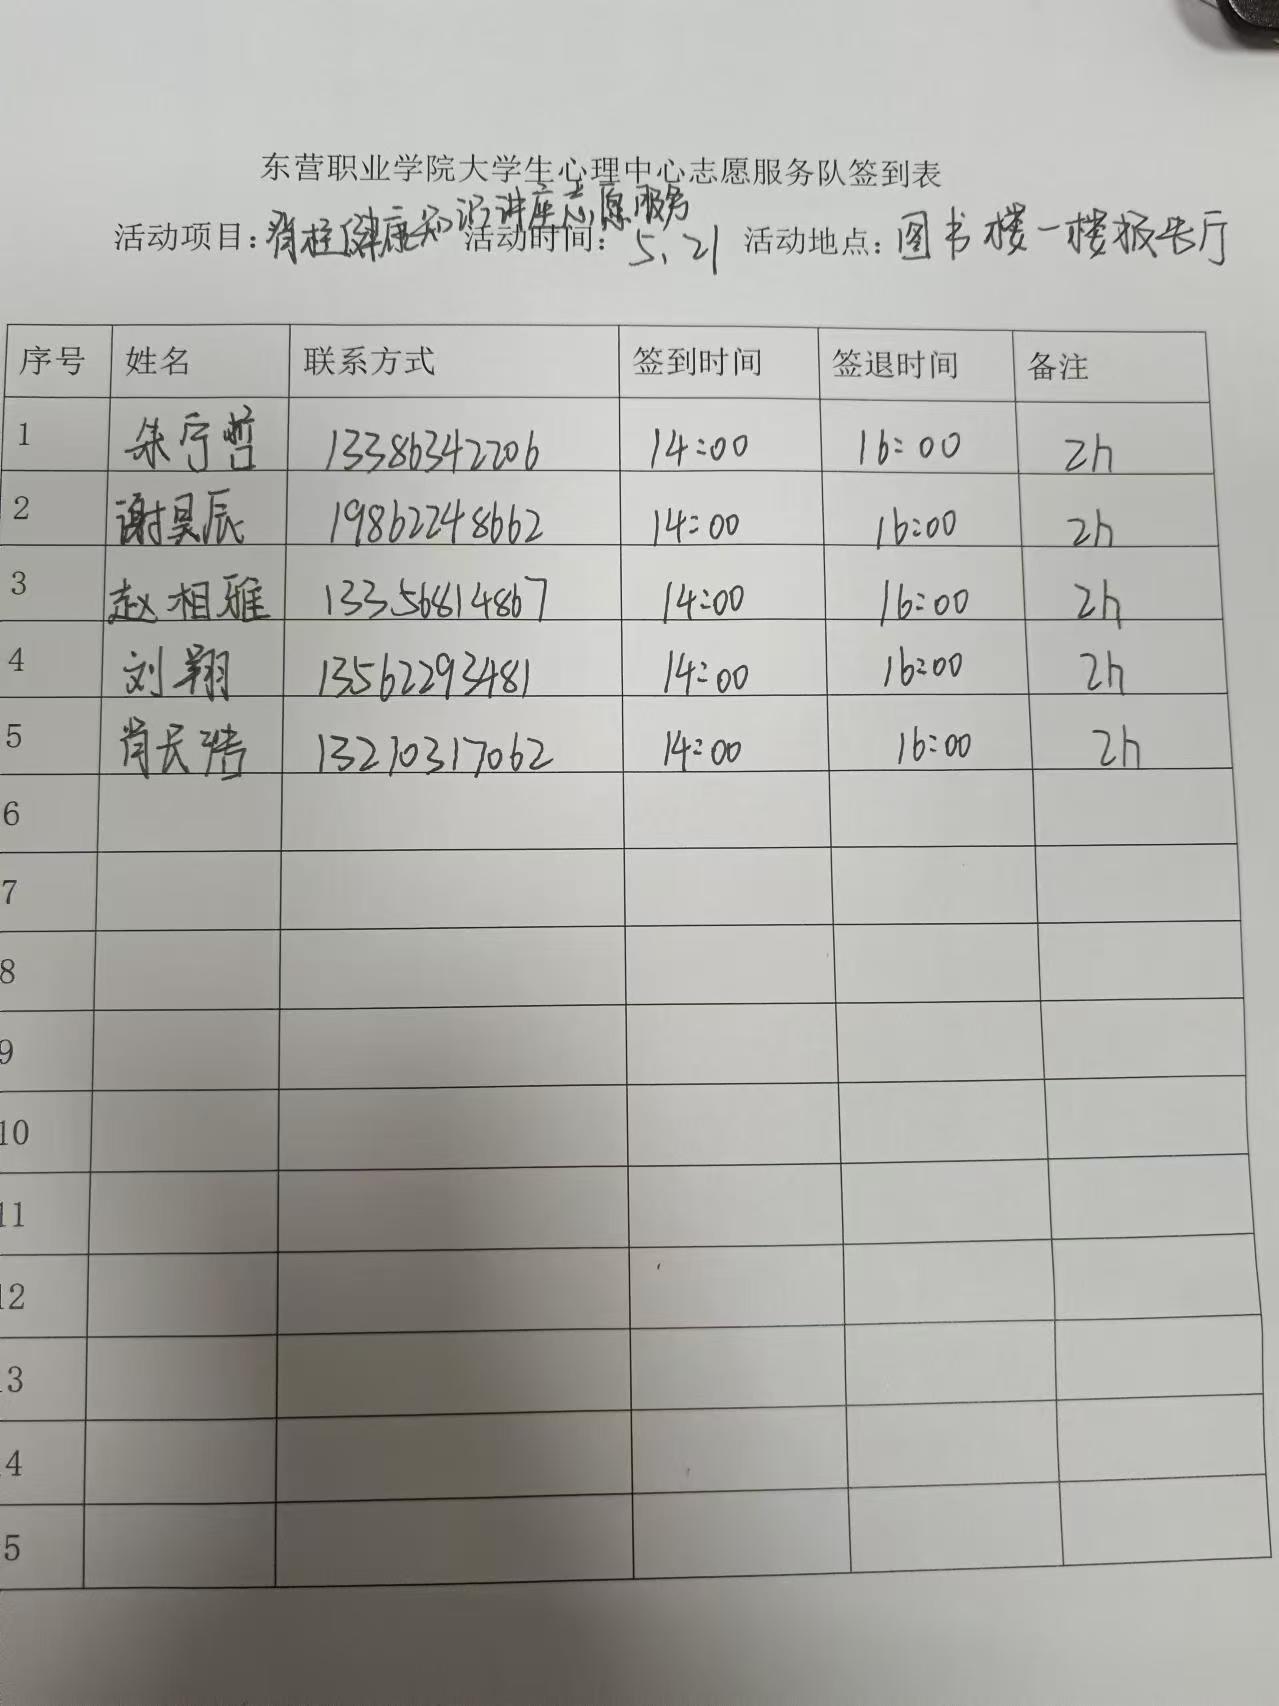 东营职业学院大学生心理中心志愿服务队签到表
活动项目：脊柱健康知识讲座志愿服务 活动时间：5.21 活动地点：图书楼一楼报告厅
序号 姓名 联系方式 签到时间 签退时间 备注
1 朱宁哲 13386342206 14:00 16:00 2h
2 谢昊辰 19862248662 14:00 16:00 2h
3 赵相雅 13356814867 14:00 16:00 2h
4 刘翔 13562293481 14:00 16:00 2h
5 肖长 13210317062 14:00 16:00 2h
6
7
8
9
10
11
12
13
14
15